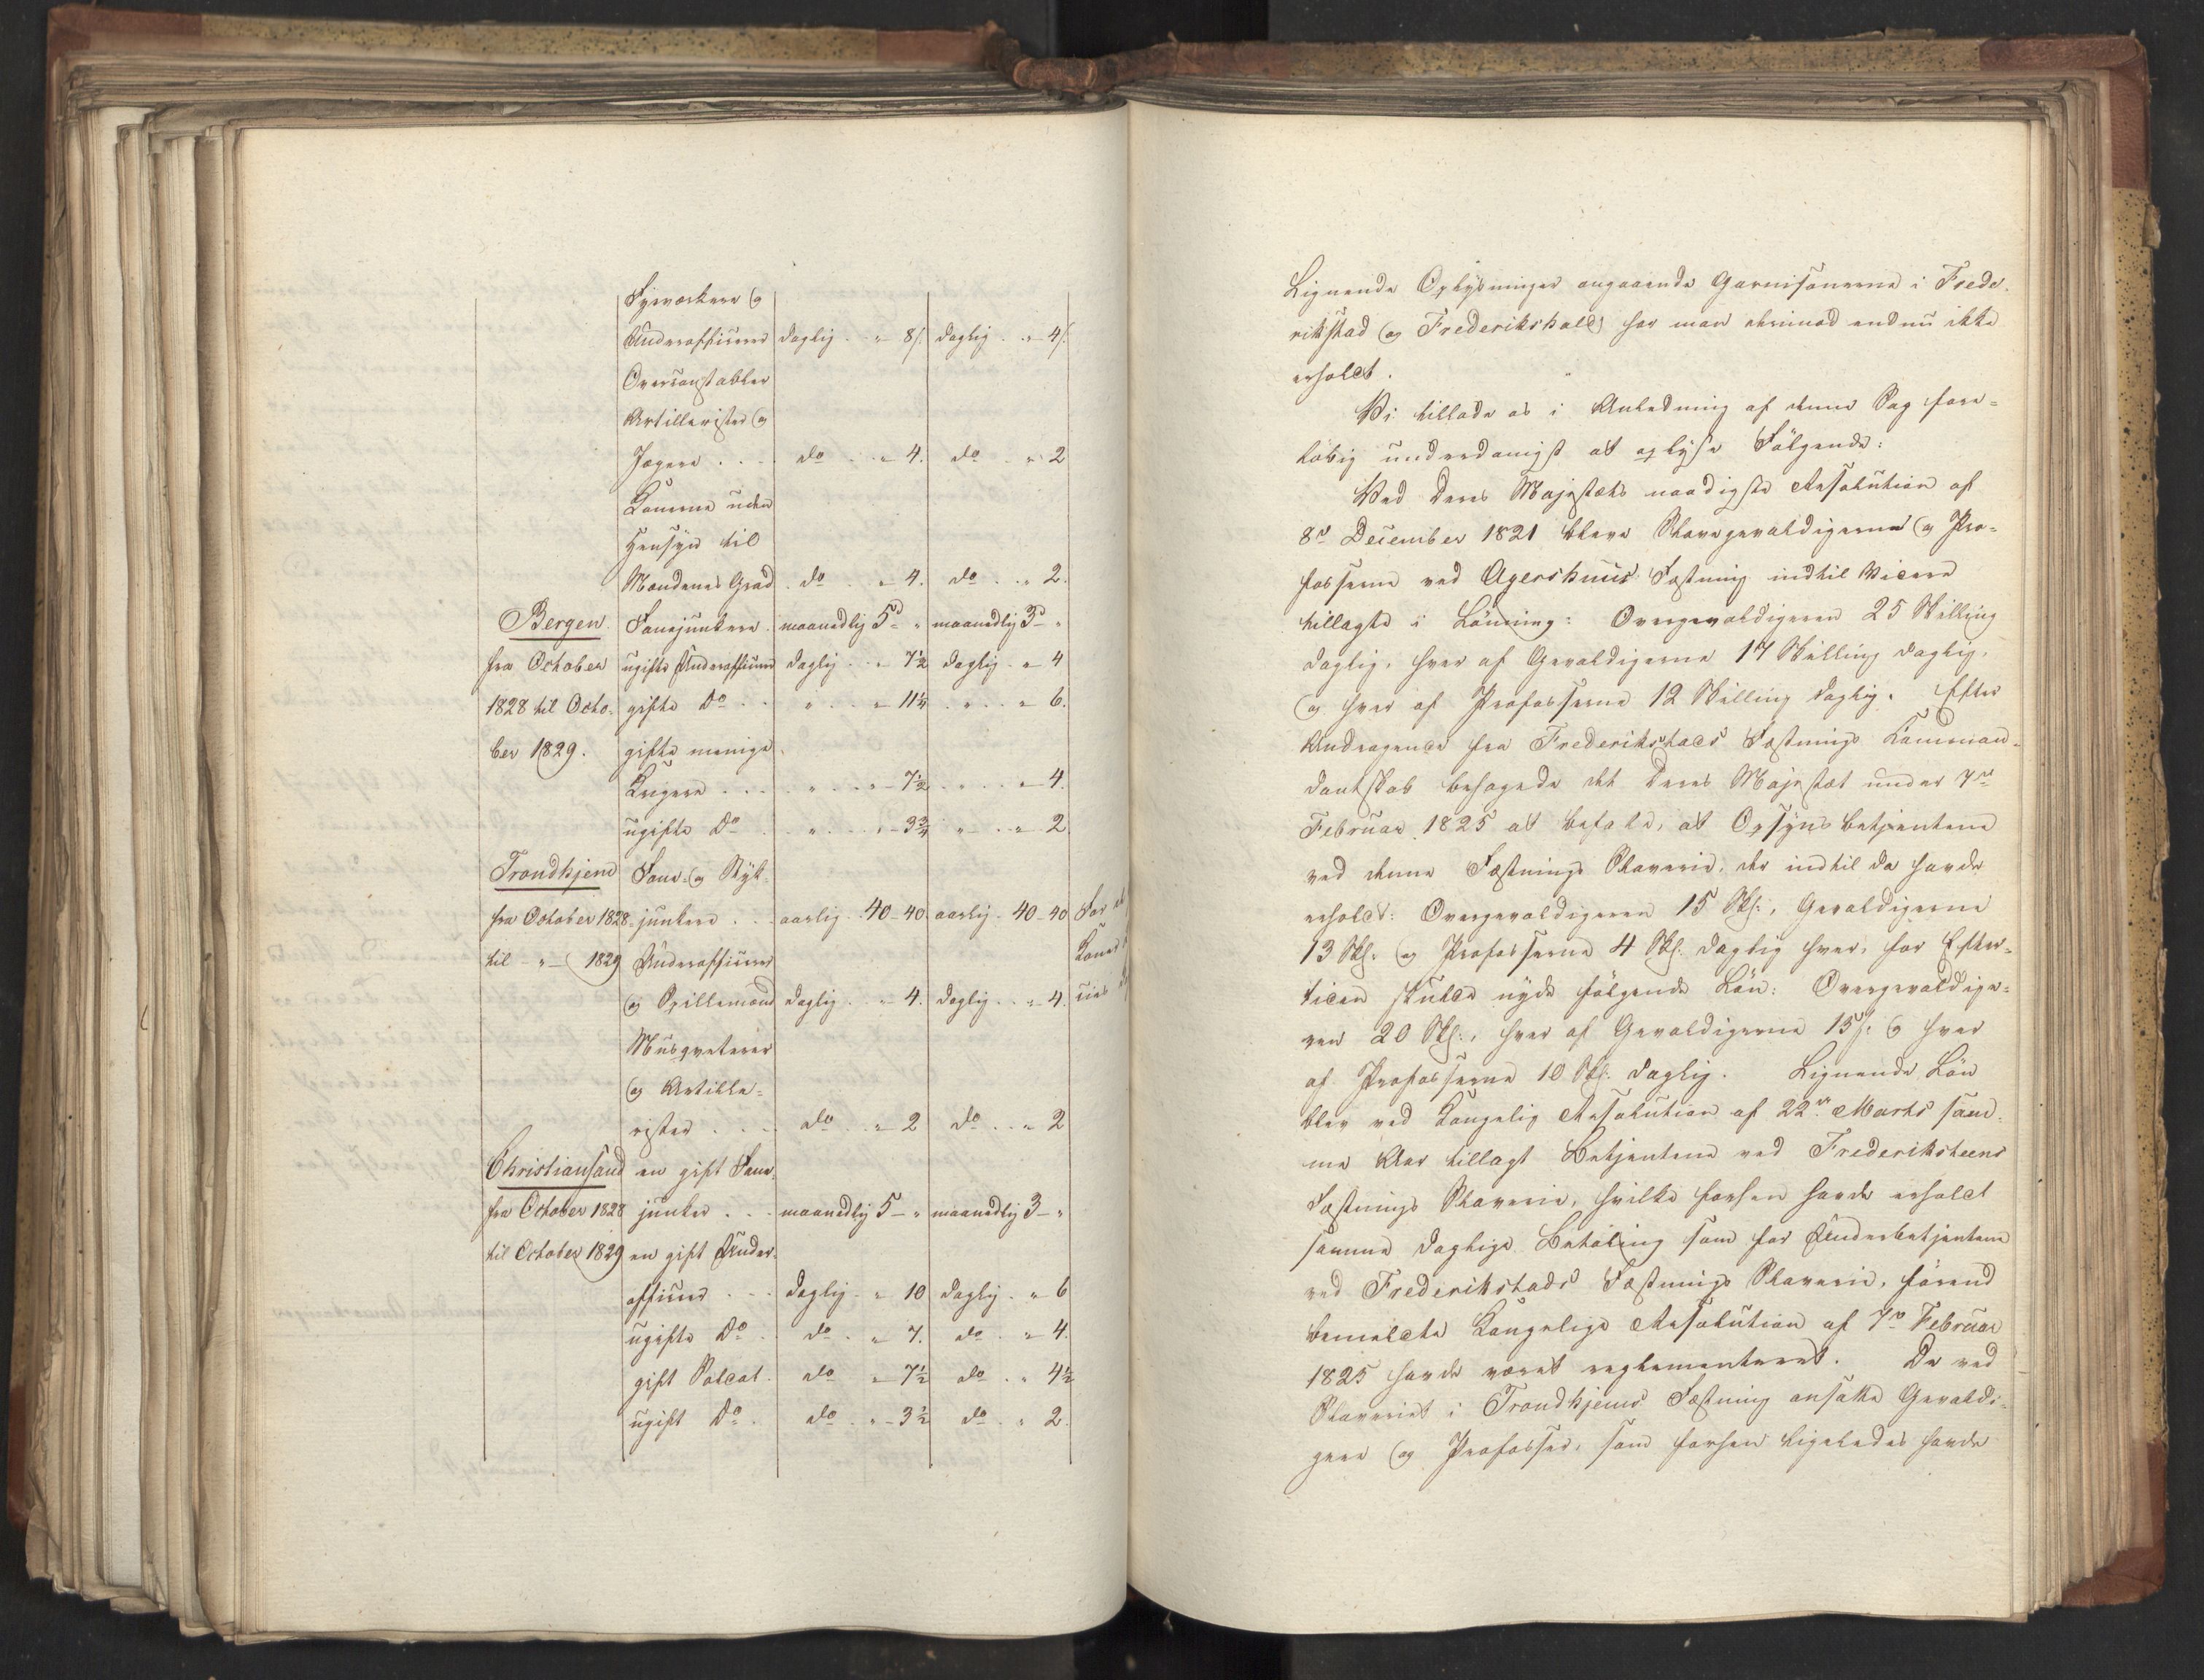 Fyrværkere og
Underofficerer daglig . „ 8/. daglig . „ 4/.
Overconstabler
Artillerister og
Jægere . . . do . „ 4. do . „ 2
Konerne uden
Hensyn til
Mændenes Grad . do . „ 4. do . „ 2.
Bergen. Fanejunkere . maanedlig 5 „ maanedlig 3 „
fra October ugifte Underofficerer daglig . „ 7½ daglig . „ 4
1828 til Octo- gifte Do . . „ . „ 11¼ . „ . „ 6.
ber 1829. gifte menige
Krigere . . . „ . „ 7½ . . „ 4.
ugifte Do . „ . „ 3¾ „ . „ 2.
Trondhjem Fane- og Styk-
fra October 1828 junkere . . aarlig . 40-40 aarlig . 40-40 For
til „ 1829 Underofficerer Koner
og Spillemænd daglig . „ 4. daglig . „ 4.
Musqveterer
og Artille-
rister . . . do . „ 2 do . . „ 2
Christiansand en gift Fane-
fra October 1828 junker . . . maanedlig 5 - „ maanedlig 3 - „
til October 1829 en gift Under-
officer . . . daglig . „ 10 daglig . „ 6
ugifte Do . do . „ 7. do . „ 4.
gift Soldat . do . „ 7½ do . „ 4½
ugift Do . do . „ 3½ do . „ 2.
Lignende Oplysninger angaaende Garnisonerne i Frede-
rikstad og Frederikshald har man derimod endnu ikke
erholdt.
Vi tillade os i Anledning af denne Sag fore-
løbig underdanigst at oplyse Følgende:
Ved Deres Majestæts naadigste Resolution af
8de December 1821 bleve Slavegevaldigerne og Pro-
fosserne ved Agershuus Fæstning indtil Videre
tillagte i Lønning: Overgevaldigeren 25 Skilling
daglig, hver af Gevaldigerne 17 Skilling daglig,
og hver af Profosserne 12 Skilling daglig. Efter
Andragende fra Frederikstads Fæstnings Comman-
dantskab behagede det Deres Majestæt under 7de
Februar 1825 at befale, at Opsynsbetjentene
ved denne Fæstnings Slaverie, der indtil da havde
erholdt: Overgevaldigeren 15 Sk:, Gevaldigerne
13 Sk: og Profosserne 4 Sk: daglig hver, for Efter-
tiden skulde nyde følgende Løn: Overgevaldige-
ren 20 Sk:, hver af Gevaldigerne 15 /: og hver
af Profosserne 10 Sk: daglig. Lignende Løn
blev ved Kongelig Resolution af 22de Marts sam-
me Aar tillagt Betjentene ved Frederiksteens
Fæstnings Slaverie, hvilke forhen havde erholdt
samme daglige Betaling som for Underbetjentene
ved Frederikstads Fæstnings Slaverie, førend
bemeldte Kongelige Resolution af 7de Februar
1825 havde været reglementeret. De ved
Slaveriet i Trondhjems Fæstning ansatte Gevaldi-
gere og Profosser, som forhen ligeledes havde